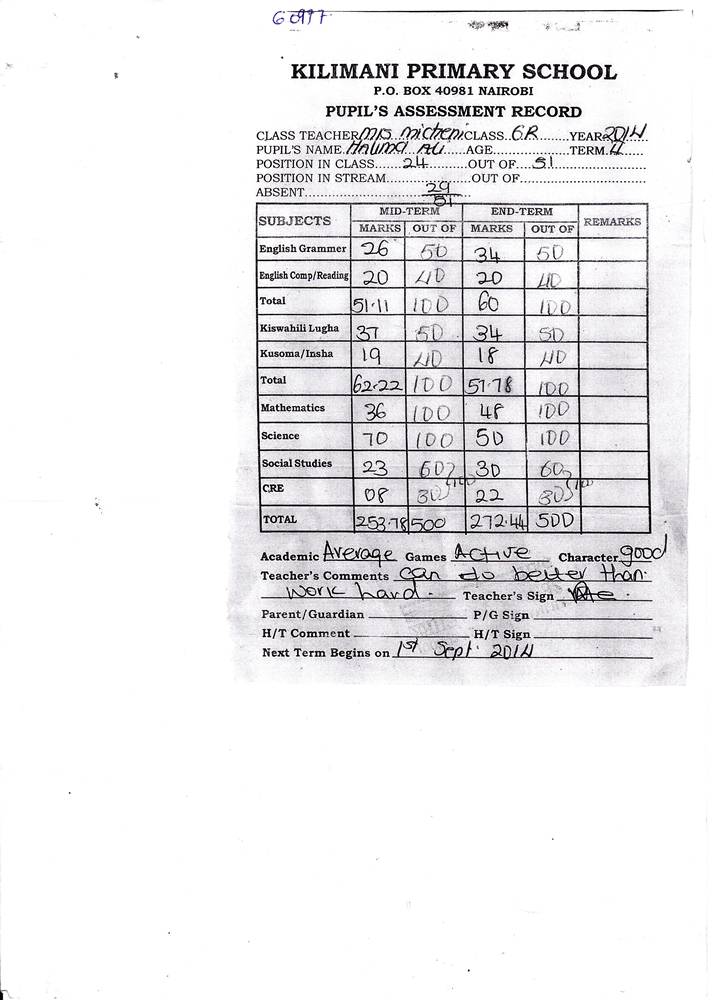 60977
KILIMANI PRIMARY SCHOOL
P.O. BOX 40981 NAIROBI
PUPIL'S ASSESSMENT RECORD
CLASS TEACHER Mrs Micheni CLASS 6R YEAR 2014
PUPIL'S NAME Halima Ali AGE TERM II
POSITION IN CLASS 24 OUT OF 51
POSITION IN STREAM OUT OF
ABSENT 29
51
SUBJECTS MID-TERM END-TERM REMARKS
MARKS OUT OF MARKS OUT OF
English Grammer 26 50 34 50
English Comp/Reading 20 40 20 40
Total 51.11 100 60 100
Kiswahili Lugha 37 50 34 50
Kusoma/Insha 19 40 18 40
Total 62.22 100 57.78 100
Mathematics 36 100 48 100
Science 70 100 50 100
Social Studies 23 60 30 60
CRE 08 30 /100 22 30 /100
TOTAL 253.78 500 272.44 500
Academic Average Games Active Character good
Teacher's Comments Can do better than.
Work hard. Teacher's Sign
Parent/Guardian P/G Sign
H/T Comment H/T Sign
Next Term Begins on 1st Sept. 2014